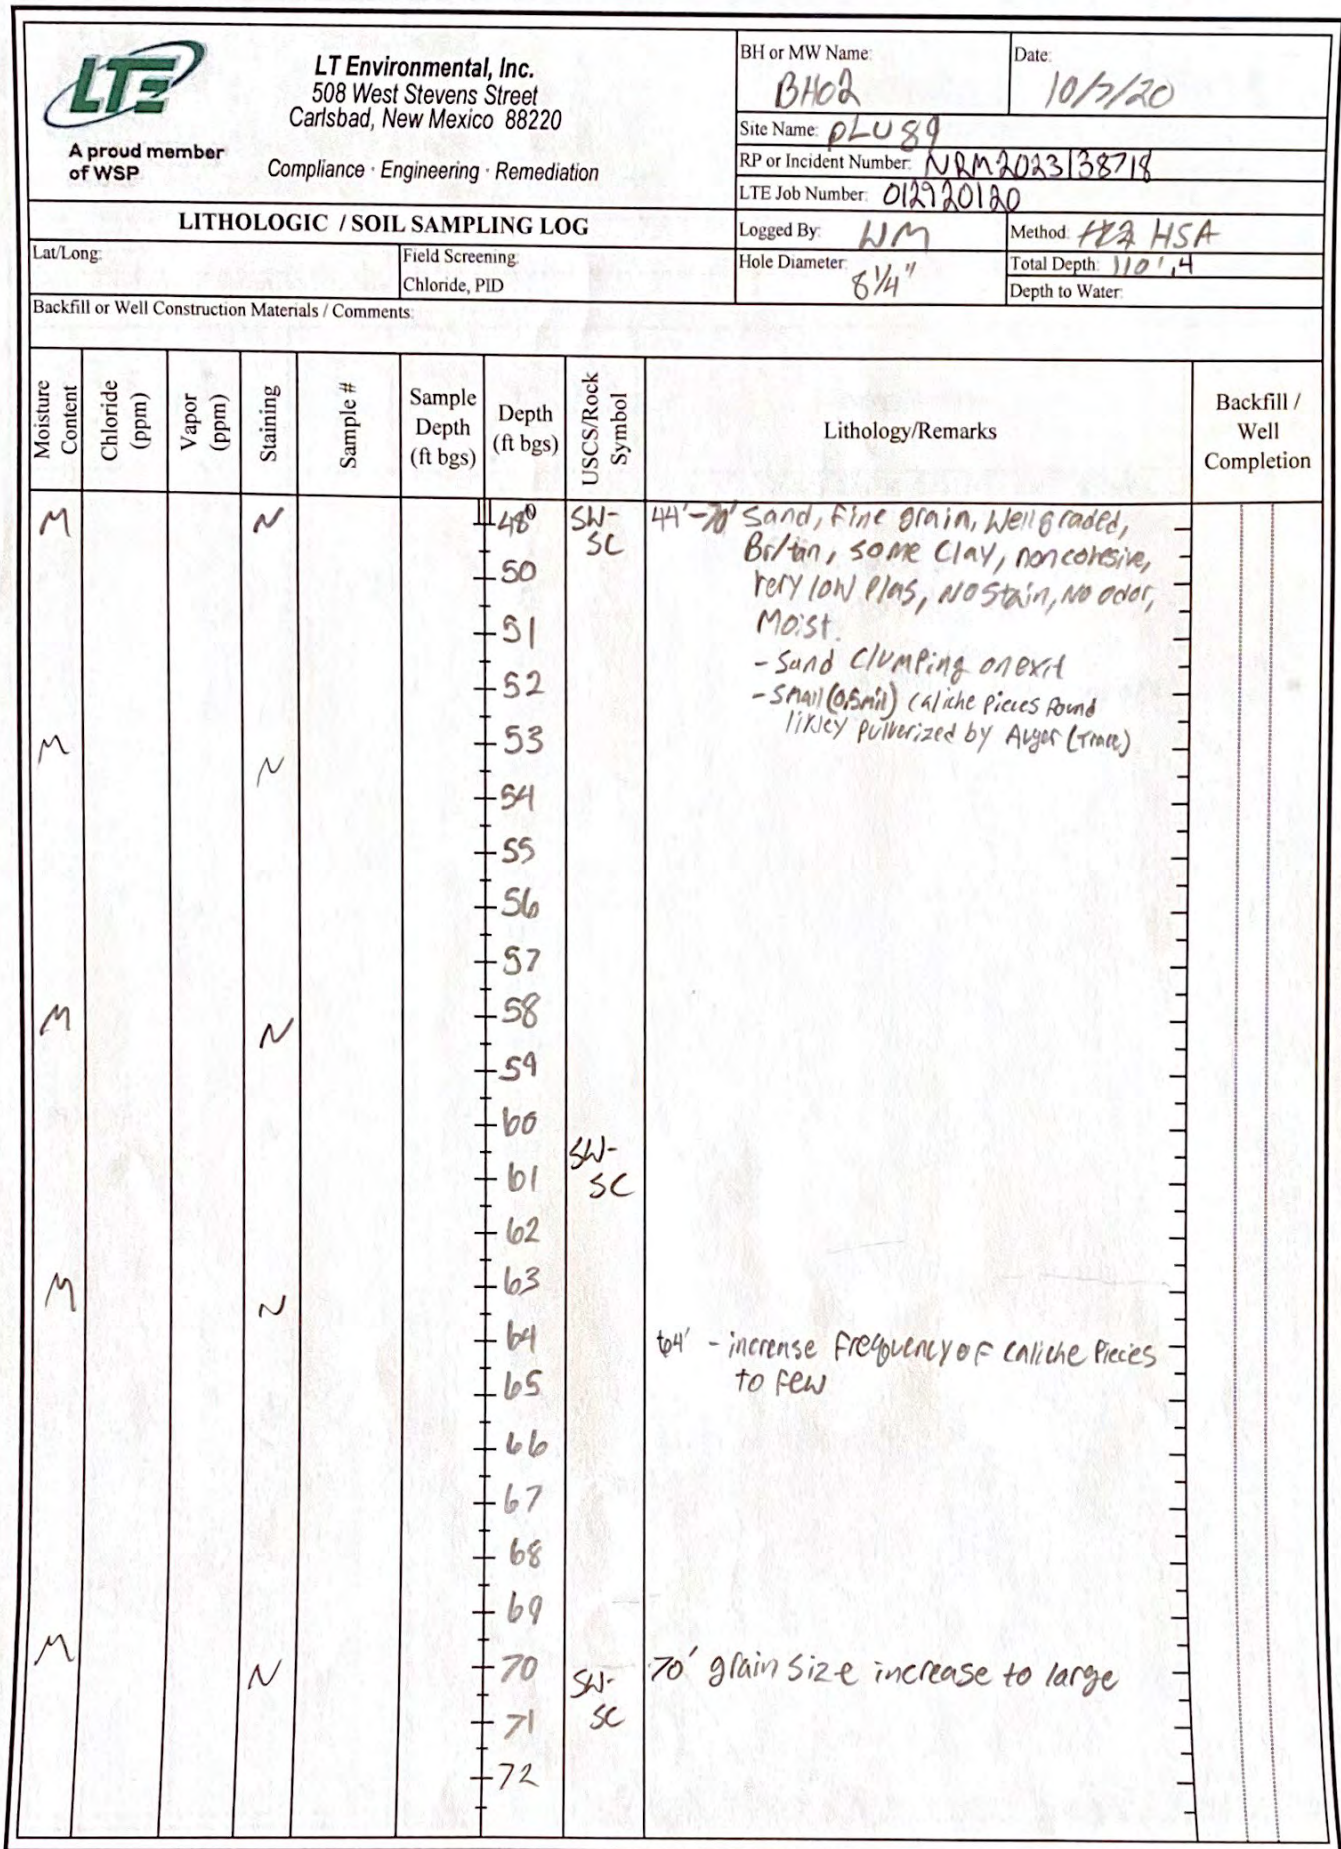 LTE
A proud member
of WSP
LT Environmental, Inc.
508 West Stevens Street
Carlsbad, New Mexico 88220
Compliance · Engineering · Remediation
BH or MW Name:
BH02
Date:
10/7/20
Site Name: PLU 89
RP or Incident Number: NRM2023138718
LTE Job Number: 012920120
LITHOLOGIC / SOIL SAMPLING LOG
Logged By: WM
Method: HSA
Lat/Long:
Field Screening:
Chloride, PID
Hole Diameter:
8 1/4"
Total Depth: 110',4
Depth to Water:
Backfill or Well Construction Materials / Comments:
Moisture Content
Chloride (ppm)
Vapor (ppm)
Staining
Sample #
Sample Depth (ft bgs)
Depth (ft bgs)
USCS/Rock Symbol
Lithology/Remarks
Backfill / Well Completion
M N 48 SW-SC 44'-70' Sand, Fine grain, Well graded,
Br/tan, some Clay, noncohesive,
50 very low Plas, No Stain, No odor,
51 Moist.
- Sand Clumping on exit
52 - Small (0.5mil) caliche Pieces found
M N 53 likley pulverized by Auger (Trace)
54
55
56
57
M N 58
59
60
SW-SC
61
62
M N 63
64 64' - increase Frequency of caliche Pieces
65 to few
66
67
68
69
M N 70 SW-SC 70' grain size increase to large
71
72